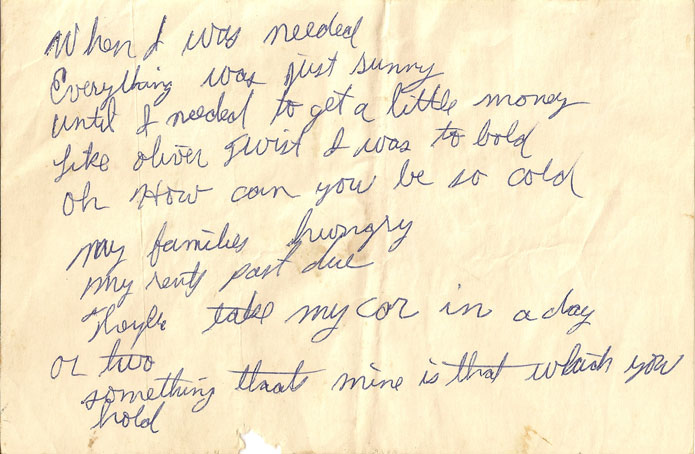 When I was needed
Everything was just sunny
until I needed to get a little money
Like oliver Twist I was to bold
Oh How can you be so cold
my families hungry
my rents past due
Thayle take my car in a day
or two
something thats mine is that which you
hold